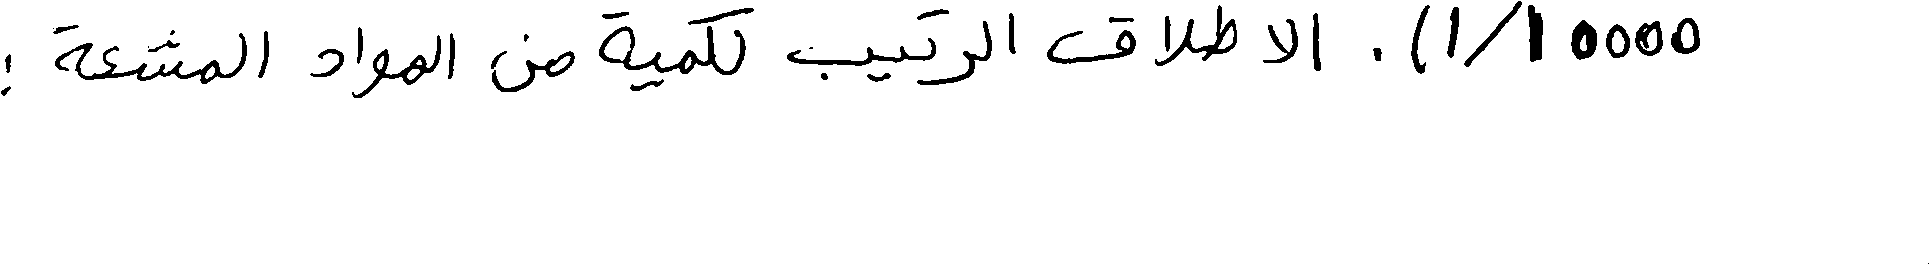 1/10000). الاطلاق الرتيب لكمية من المواد المشعة :